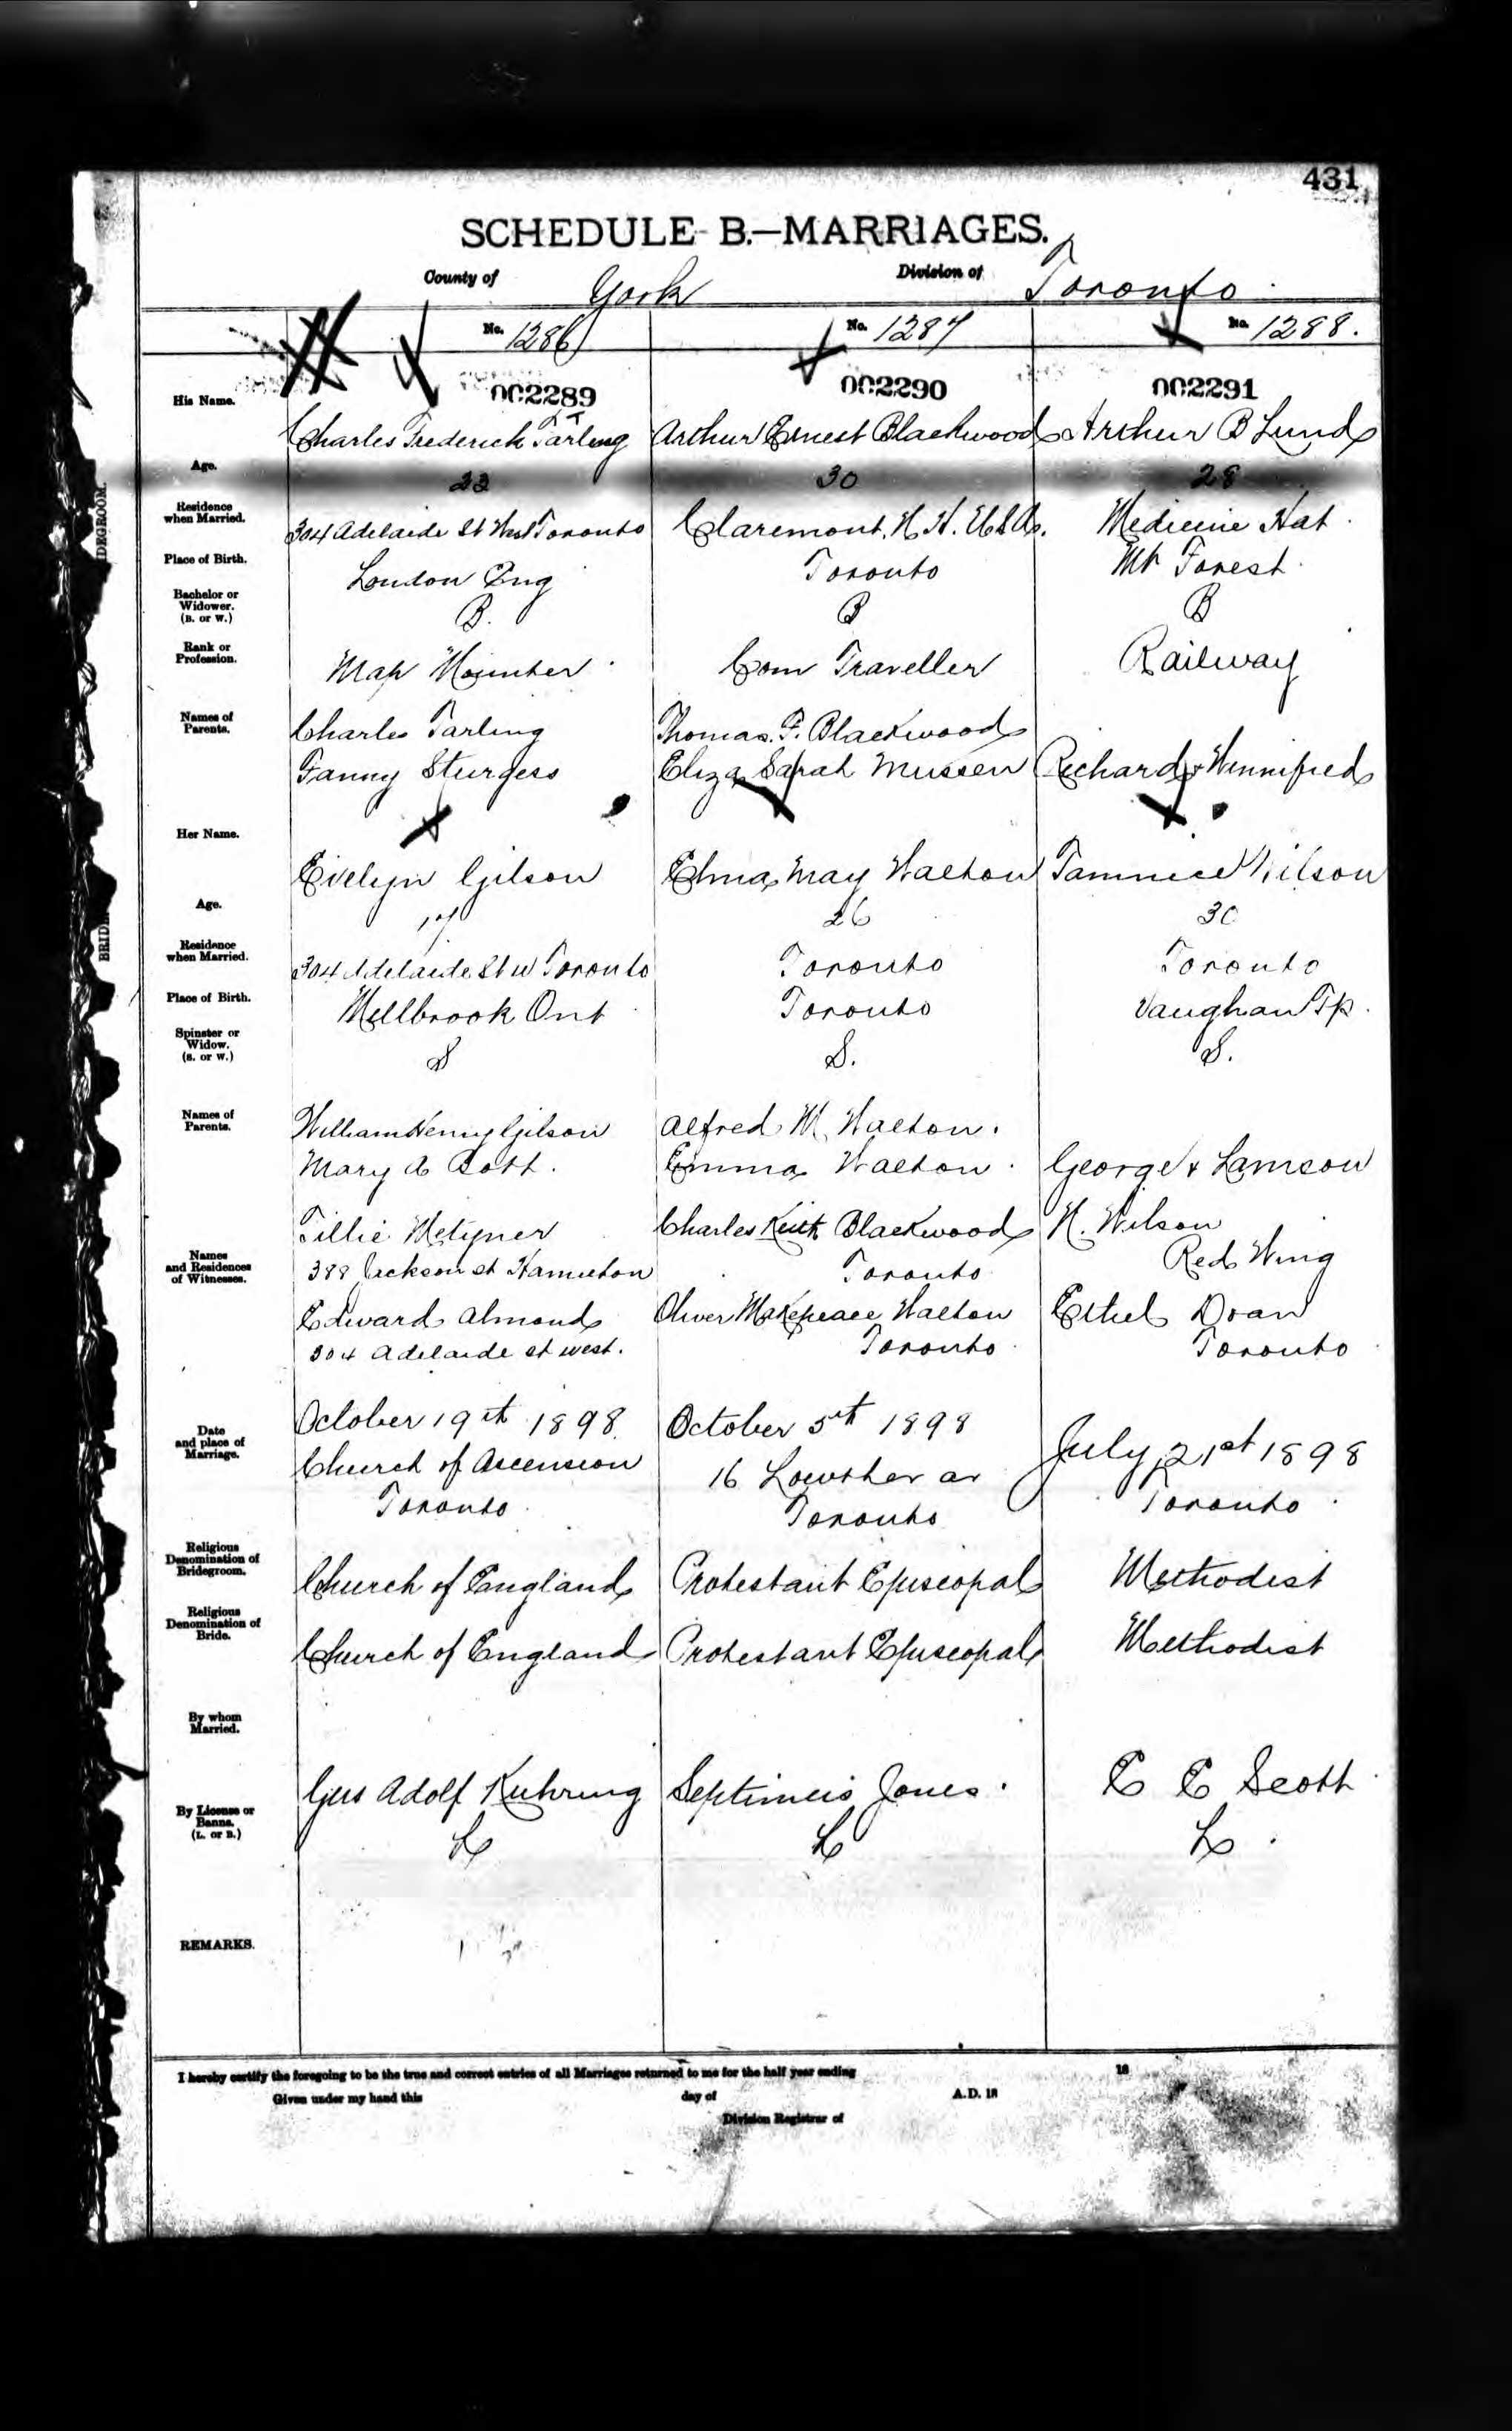 431
SCHEDULE B.—MARRIAGES.
County of York Division of Toronto
No. 1286 No. 1287 No. 1288.
002289 002290 002291
His Name.
Charles Frederick Tarling Arthur Ernest Blackwood Arthur B Lund
T
Age.
22 30 28
Residence when Married.
304 Adelaide St West Toronto Claremont, N. H. U.S.A. Medicine Hat
Place of Birth.
London Eng Toronto Mt Forest
Bachelor or Widower. (B. or W.)
B. B B
Rank or Profession.
Map Mounter Com Traveller Railway
Names of Parents.
Charles Tarling Thomas. F. Blackwood
Fanny Sturgess Eliza Sarah Mussen Richard & Winnifred
BRIDE
Her Name.
Evelyn Gilson Elma May Walton Wilson
Age.
17 26 30
Residence when Married.
304 Adelaide St W Toronto Toronto Toronto
Place of Birth.
Millbrook Ont Toronto Vaughan Tp.
Spinster or Widow. (S. or W.)
S S. S.
Names of Parents.
William Henry Gilson Alfred W. Walton.
Mary A Bott. Emma Walton. George &
Names and Residences of Witnesses.
Tillie Charles Keith Blackwood H. Wilson
388 Jackson st Hamilton Toronto Red Wing
Edward Almond Oliver Makepeace Walton Ethel Doan
304 Adelaide st west. Toronto Toronto
Date and place of Marriage.
October 19th 1898. October 5th 1898 July 21st 1898
Church of Ascension 16 Lowther av Toronto
Toronto Toronto
Religious Denomination of Bridegroom.
Church of England Protestant Episcopal Methodist
Religious Denomination of Bride.
Church of England Protestant Episcopal Methodist
By whom Married.
Gus Adolf Kuhring Septimus Jones. C C Scott
By License or Banns. (L. or B.)
L L L
REMARKS.
I hereby certify the foregoing to be the true and correct entries of all Marriages returned to me for the half year ending 18
Given under my hand this day of A.D. 18
Division Registrar of